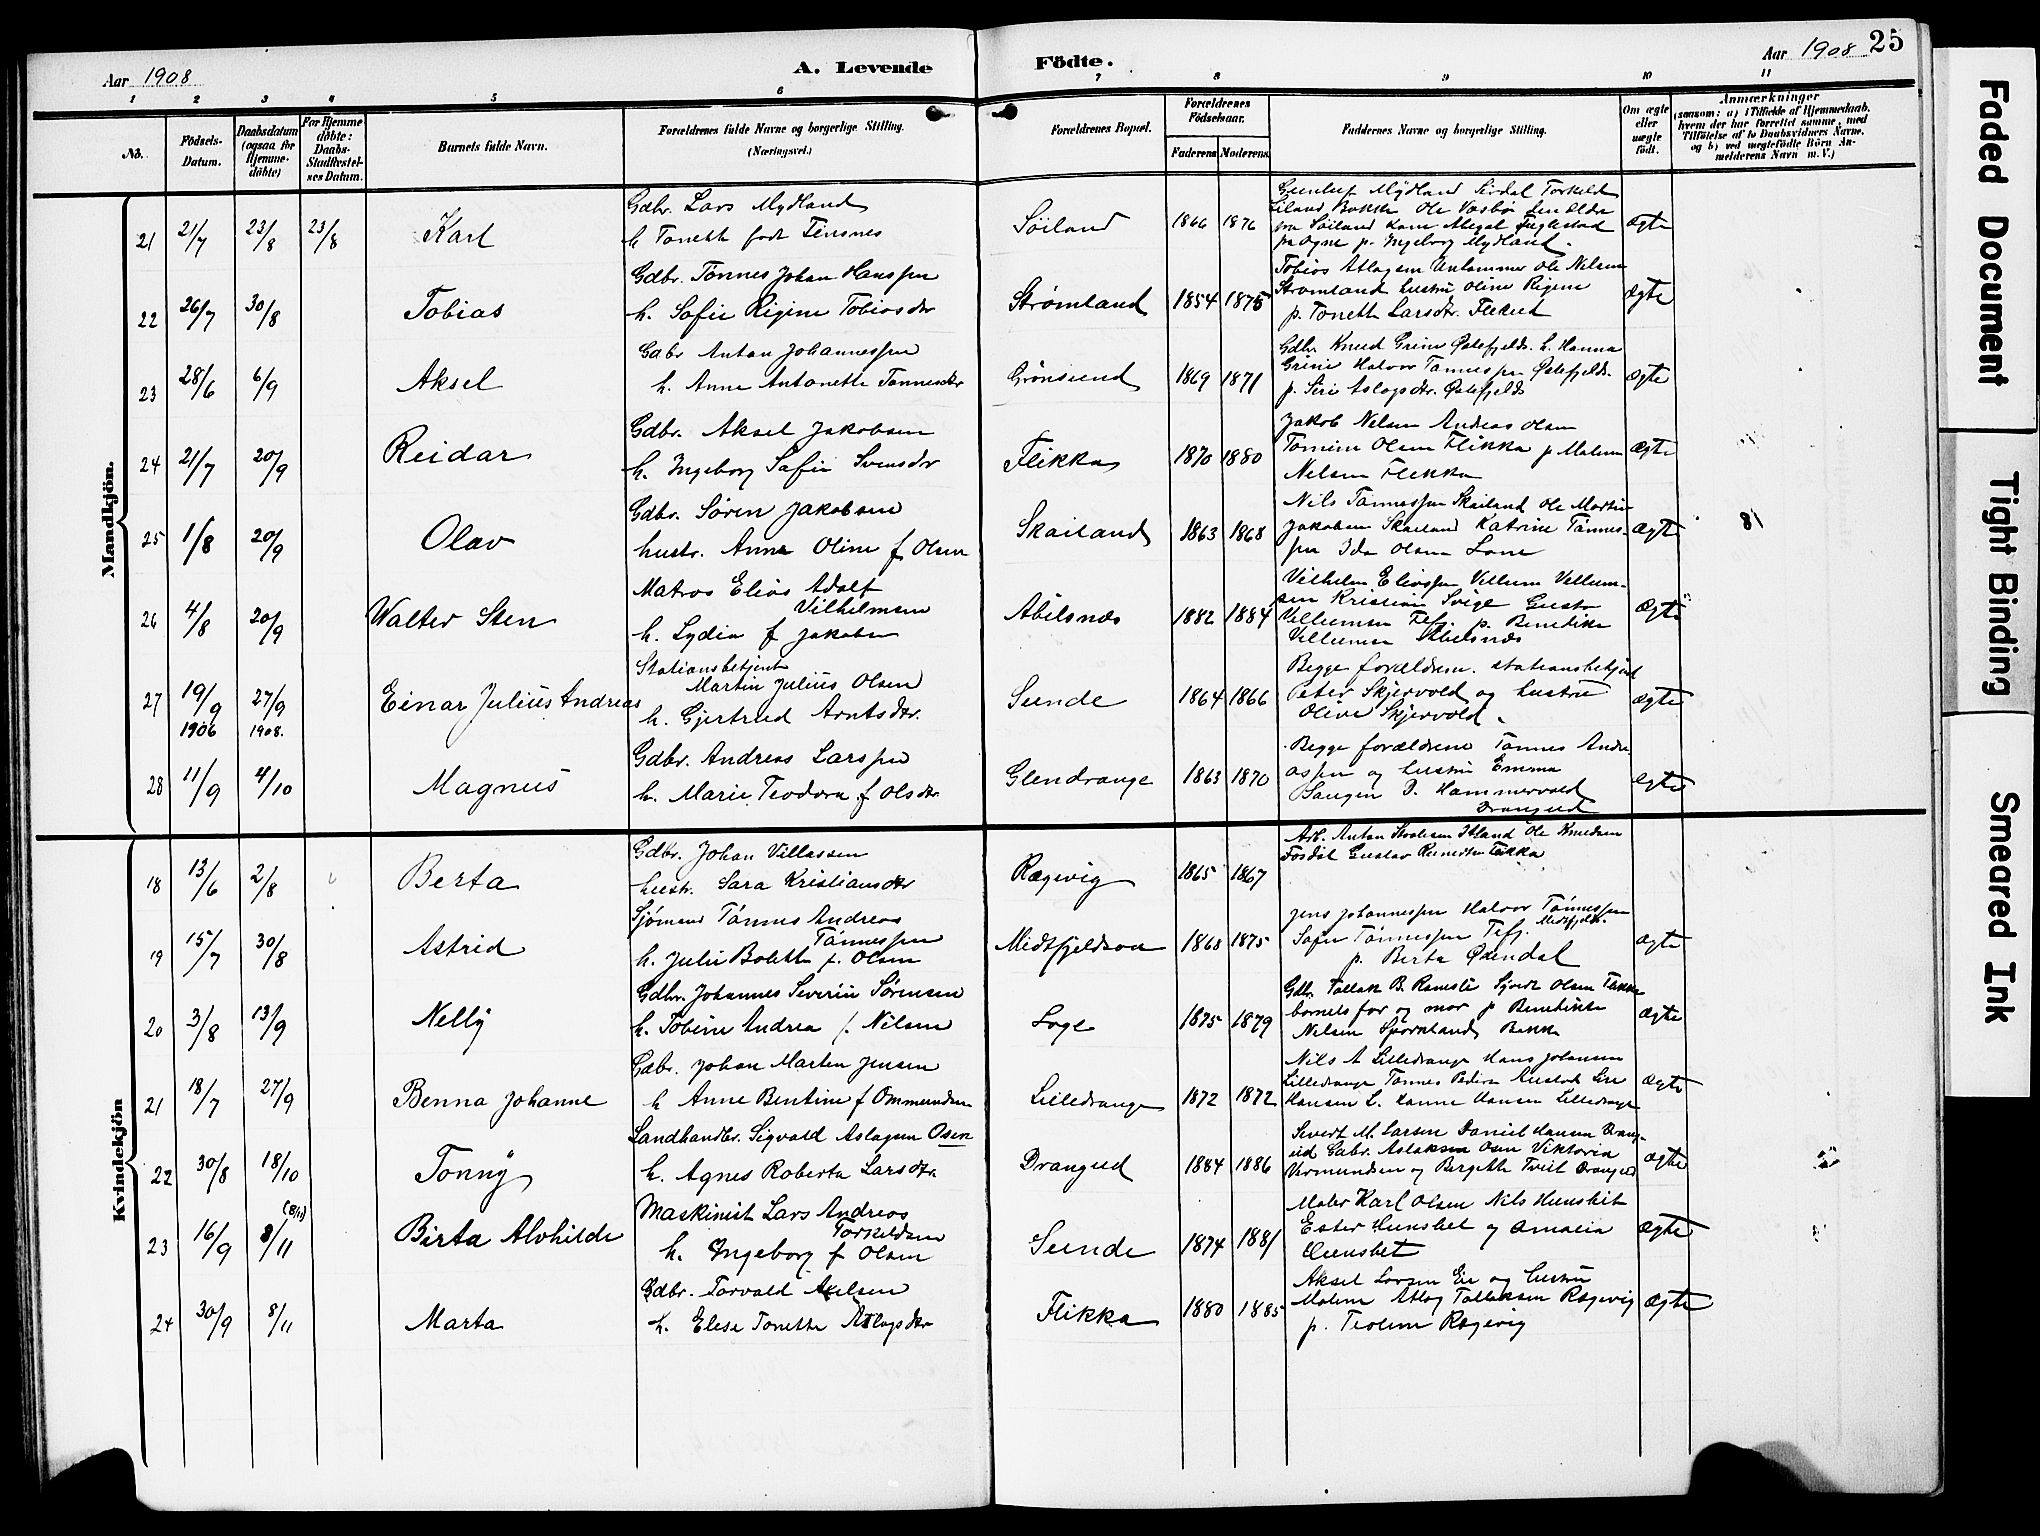 Aar 1908
A. Levende Födte.
Aar 1908 25
1 2 3 4 5 6 7 8 9 10 11
No.
Födsels-Datum.
Daabsdatum (ogsaa for Hjemme-döbte)
For Hjemme döbte: Daabs-Stadfæstel-ses Datum.
Barnets fulde Navn.
Forældrenes fulde Navne og borgerlige Stilling. (Næringsvei.)
Forældrenes Bopæl.
Forældrenes Födselsaar.
Faderens Moderens
Faddernes Navne og borgerlige Stilling.
Om ægte eller uægte födt.
Anmærkninger
(saasom: a) i Tilfælde af Hjemmedaab,
hvem der har forrettet samme, med
Tilföielse af to Daabsvidners Navne.
og b) ved uægtefödte Börn An-
melderens Navn m. V.)
Mandkjön.
21 21/7 23/8 23/8 Karl
Gdbr. Lars Mydland
h Tonette født
Söiland 1866 1876
Mydland Sirdal Torkeld
Ole
fra Söiland
fra Ogne p. Ingeborg Mydland
ægte
22 26/7 30/8 Tobias
Gdbr. Tönnes Johan Hanssen
h. Sofie Rigine Tobiasdtr
Strømland 1854 1875
Tobias Atlagsen Ole Nilsen
Strømland hustru Oline Rigine
p. Tonette Larsdtr. Flikkeid
ægte
23 28/6 6/9 Aksel
Gdbr Anton Johannessen
h. Anne Antonette Tønnesdtr
Grönsund 1869 1871
Gdbr Knud Grini Østefjelds. h. Hanna
Grini Halvor Tønnessen Østefjelds.
p. Siri Aslagsdtr. Østefjelds
ægte
24 21/7 20/9 Reidar
Gdbr. Aksel Jakobsen
h. Ingeborg Sofie Svensdtr
Flikka 1870 1880
Jakob Nilsen Andreas Olsen
Tomine Olsen Flikka p Malene
Nilsen Flikka
ægte
25 1/8 20/9 Olav
Gdbr. Sören Jakobsen
hustr. Anne Oline f Olsen
Skailand 1863 1868
Nils Tønnessen Skailand Ole Martin
Jakobsen Skailand Katrine Tönnes-
sen Ida Olsen Lone
ægte
81
26 4/8 20/9 Walter Sten
Matros Elias Adolf
Vilhelmsen
h. Lydia f Jakobsen
Abilsnæs 1882 1884
Vilhelm Eliassen Villum Villum-
sen Kristian Svige Gusta
Villumsen Fefj. p. Benedikte
Villumsen Abelsnæs
ægte
27 19/9 1906 27/9 1908. Einar Julius Andreas
Stationsbetjent
Martin Julius Olsen
h. Gjertrud Arntsdtr.
Sunde 1864 1866
Begge forældrene. Stationsbetjent
Peter Skjervold og hustru
Olive Skjervold.
ægte
28 11/9 4/10 Magnus
Gdbr. Andreas Larssen
h. Marie Teodora f Olsdtr
Glendrange 1863 1870
Begge forældrene Tønnes Andre-
assen og hustru Emma
Hammervold
Drangeid
ægte
Kvindekjön
18 13/6 2/8 Berta
Gdbr. Johan Villassen
hustr. Sara Kristiansdtr
Rægevig 1865 1867
Arb. Anton Ole Knudsen
Fosdal Gustav
19 15/7 30/8 Astrid
Sjömand Tönnes Andreas
Tønnessen
h. Julie Bolette f. Olsen
Midtfjeldsaa 1863 1875
Jens Johannessen Halvor Tönnessen
Sofie Tönnessen Fefj. Midtfjeldsa.
p. Berta Ødendal
ægte
20 3/8 13/9 Nelly
Gdbr. Johannes Severin Sørensen
h. Tobine Andrea f. Nilsen
Loge 1875 1879
Gdbr. Tollak B. Ramsli Sjovat Olsen
barnets far og mor p Benedikte
Nilsen Bakke
ægte
21 18/7 27/9 Benna Johanne
Gdbr. Johan Marten Jensen
h Anne Bentine f Ommundsen
Lilledrange 1872 1872
Nils A Lilledrange Hans Johansen
Lilledrange Tönnes Austad
Hansen L. Hanne Hansen Lilledrange
ægte
22 30/8 18/10 Tonny
Landhandler. Sigvald Aslagsen Osen
h. Agnes Roberta Larsdtr.
Drangeid 1884 1886
Sivert M. Larsen Daniel Hansen Drang-
eid Gabr. Aslaksen Osen Viktoria
Vermundsen og Bergitte Tveit Drangeid
ægte
23 16/9 8/11 (8/11) Birta Alvhilde
Maskinist Lars Andreas
Torkildsen
h. Ingeborg f Olsen
Sunde 1874 1881
Maler Karl Olsen Nils Hunsbet
Ester Hunsbet og Amalia
Hunsbet
ægte
24 30/9 8/11 Marta
Gdbr. Torvald Axelsen
h. Elise Tonette Atlagsdtr
Flikka 1880 1885
Aksel Larsen Eie og hustru
Malene Atlag Tallaksen Rægevig
p. Teoline Rægevig
ægte
Faded Document
Tight Binding
Smeared Ink